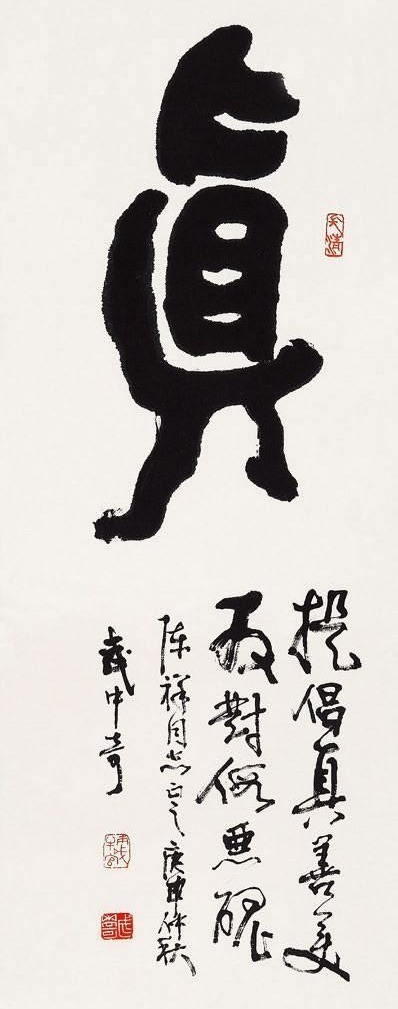 真
提倡真善美
反對假惡醜
陈祥同志正之庚申仲秋
武中奇